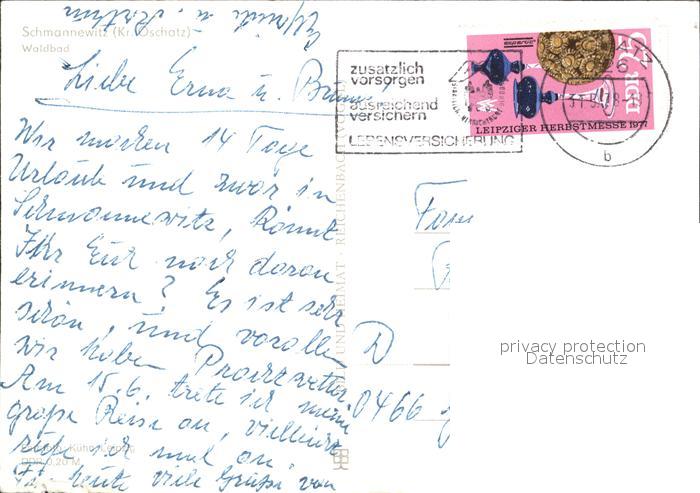 Schmannewitz (Kr. Oschatz)
Waldbad
Liebe Erna u. Bruno!
Wir machen 14 Tage
Urlaub und zwar in
Schmannewitz, könnt
Ihr Euch noch daran
erinnern? Es ist sehr
schön, und vor allem
wir haben Prachtwetter.
Am 15.6. trete ich meine
große Reise an, vielleicht
rufe ich mal an.
Für heute viele Grüße von
Kühn, Leipzig
DDR 0,20 M
BILD UND HEIMAT · REICHENBACH (VOGTL)
zusätzlich
vorsorgen
ausreichend
versichern
LEBENSVERSICHERUNG
expertic
25
DDR
LEIPZIGER HERBSTMESSE 1977
b
Fam
D
0466
privacy protection
Datenschutz